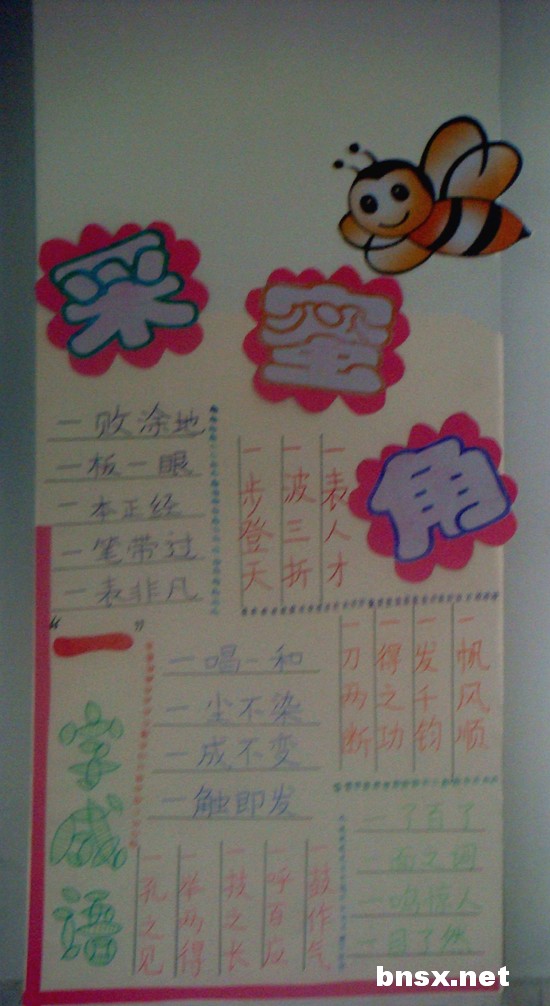 采
蜜
角
一败涂地
一板一眼
一本正经
一笔带过
一表非凡
一表人才
一波三折
一步登天
“一”
字成语
一唱一和
一尘不染
一成不变
一触即发
一刀两断
一得之功
一发千钧
一帆风顺
一鼓作气
一呼百应
一技之长
一举两得
一孔之见
一了百了
一面之词
一鸣惊人
一目了然
bnsx.net